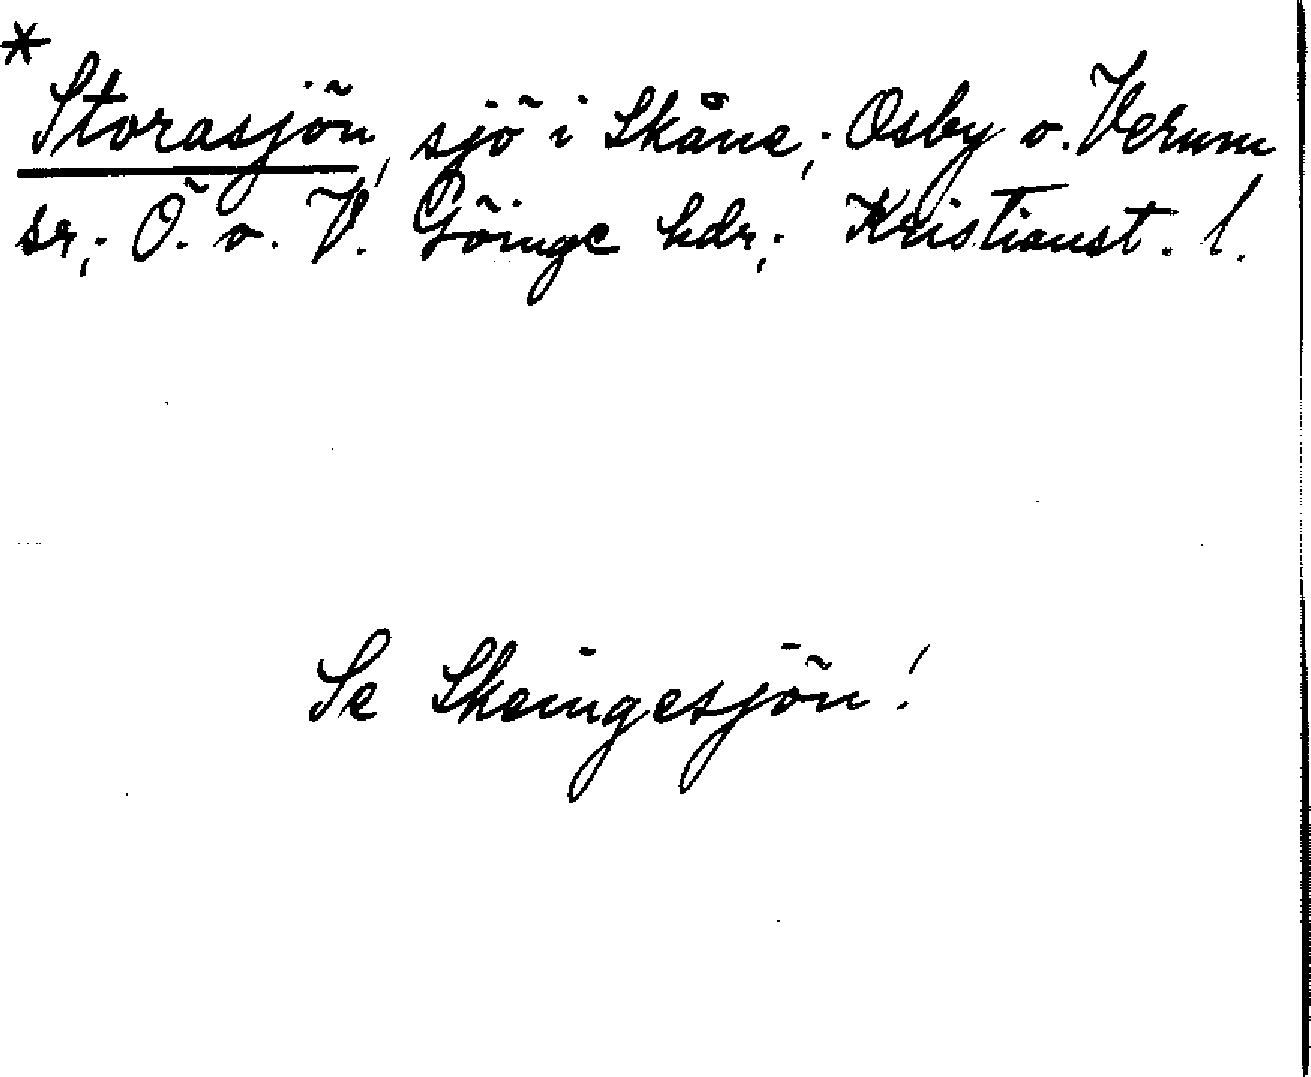 * Storasjön, sjö i Skåne; Osby o. Verum
sr; Ö. o. V. Göinge hdr; Kristianst. l.
Se Skeingesjön!